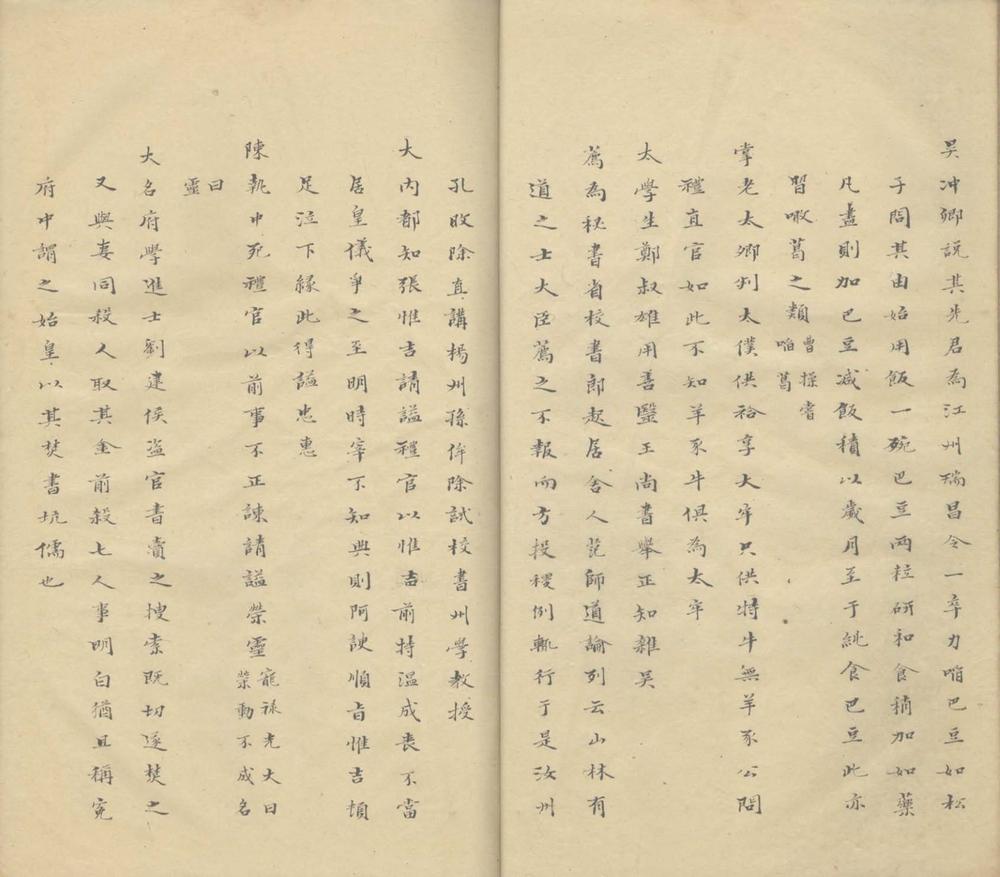 吴冲卿說其先君為江州瑞昌令一卒力啗巴豆如松
子問其由始用飯一碗巴豆兩粒研和食稍加如藥
凡盡則加巴豆减飯積以歲月至于純食巴豆此亦
習噉葛之類曹操嘗
啗葛
掌老太卿判太僕供祫享大牢只供特牛無羊豕公問
禮直官如此不知羊豕牛俱為太牢
太學生鄭叔雄用善醫王尚書舉正知雜吴
薦為秘書省校書郎起居舍人范師道論列云山林有
道之士大臣薦之不報向方投稷例輒行于是汝州
孔旼除直講楊州孫侔除試校書州學教授
大内都知張惟吉請謚禮官以惟吉前持温成喪不當
居皇儀爭之至明時宰不知典則阿諛順旨惟吉頓
足泣下緣此得謚忠惠
陳執中死禮官以前事不正諫請謚榮靈寵祿光大曰
榮動不成名
曰
靈
大名府學進士劉建侯盗官書賣之搜索既切遂焚之
又與妻同殺人取其金前殺七人事明白猶且稱寃
府中謂之始皇以其焚書坑儒也